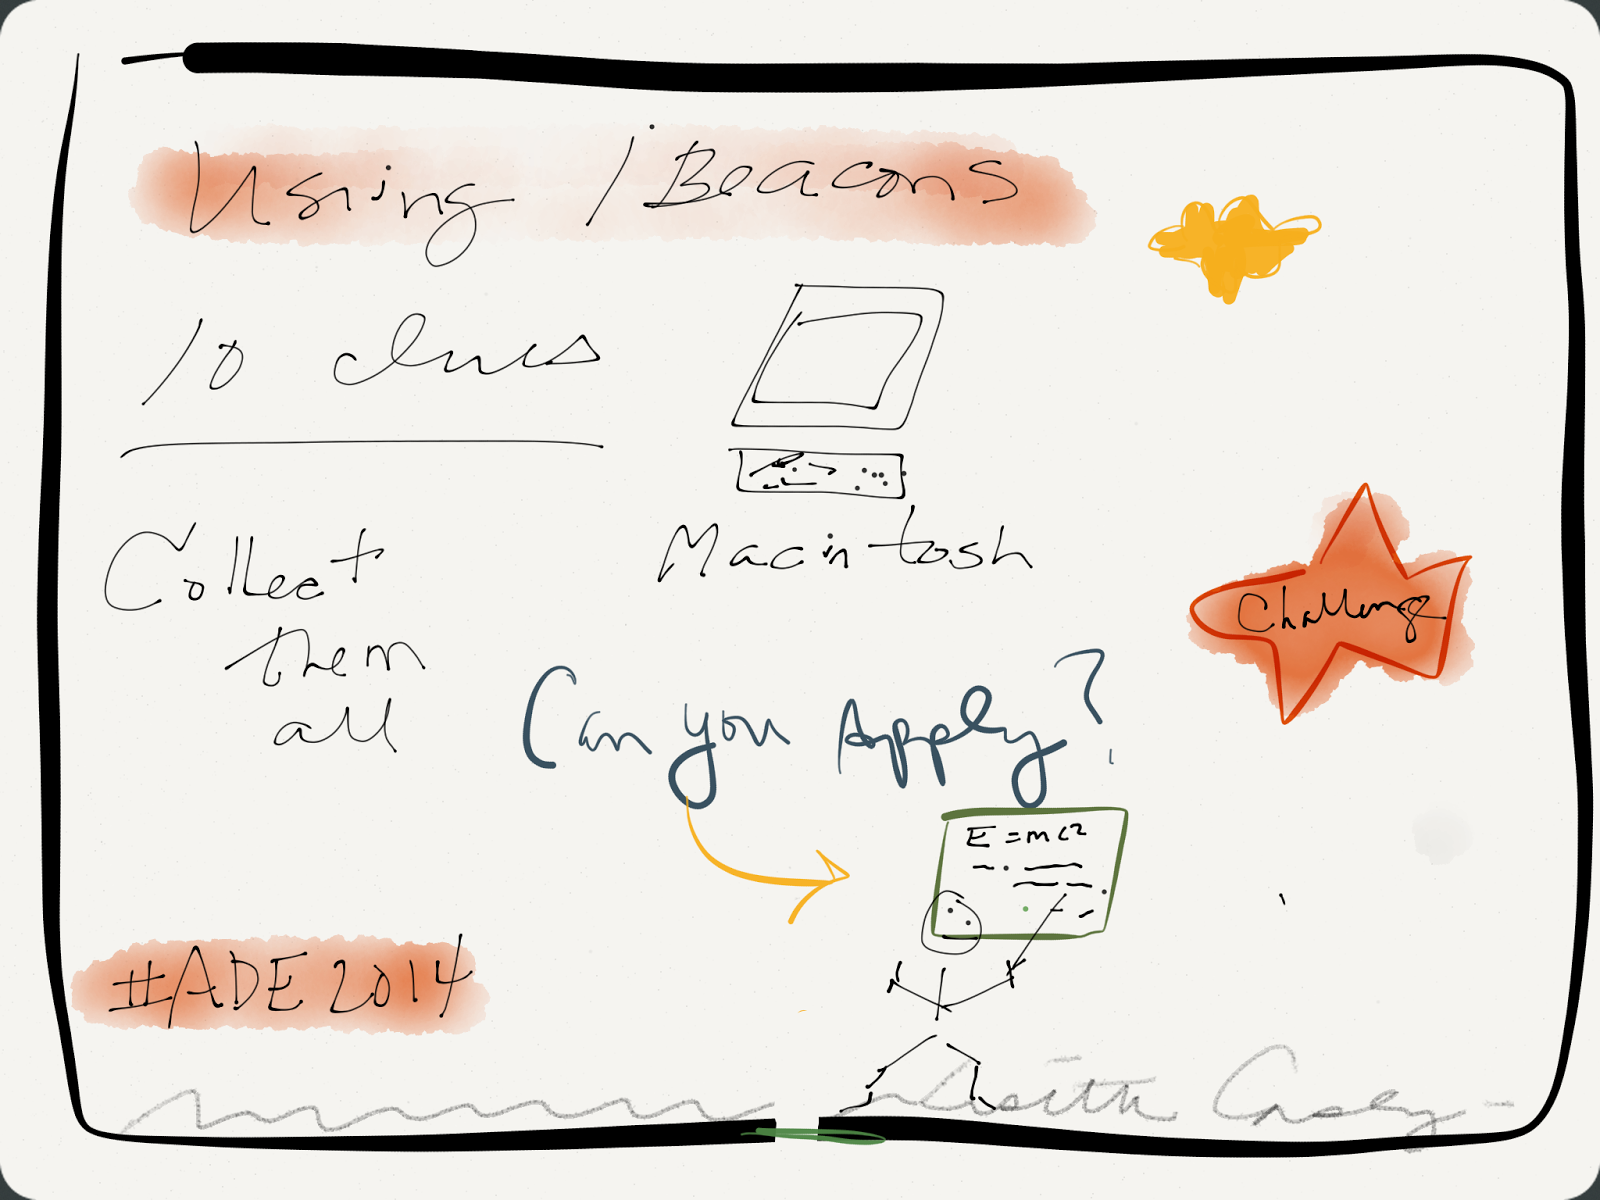 Using iBeacons
10 clues
Macintosh
Collect
them
all
Challenge
Can you Apply?
E = mc²
#ADE 2014
Casey